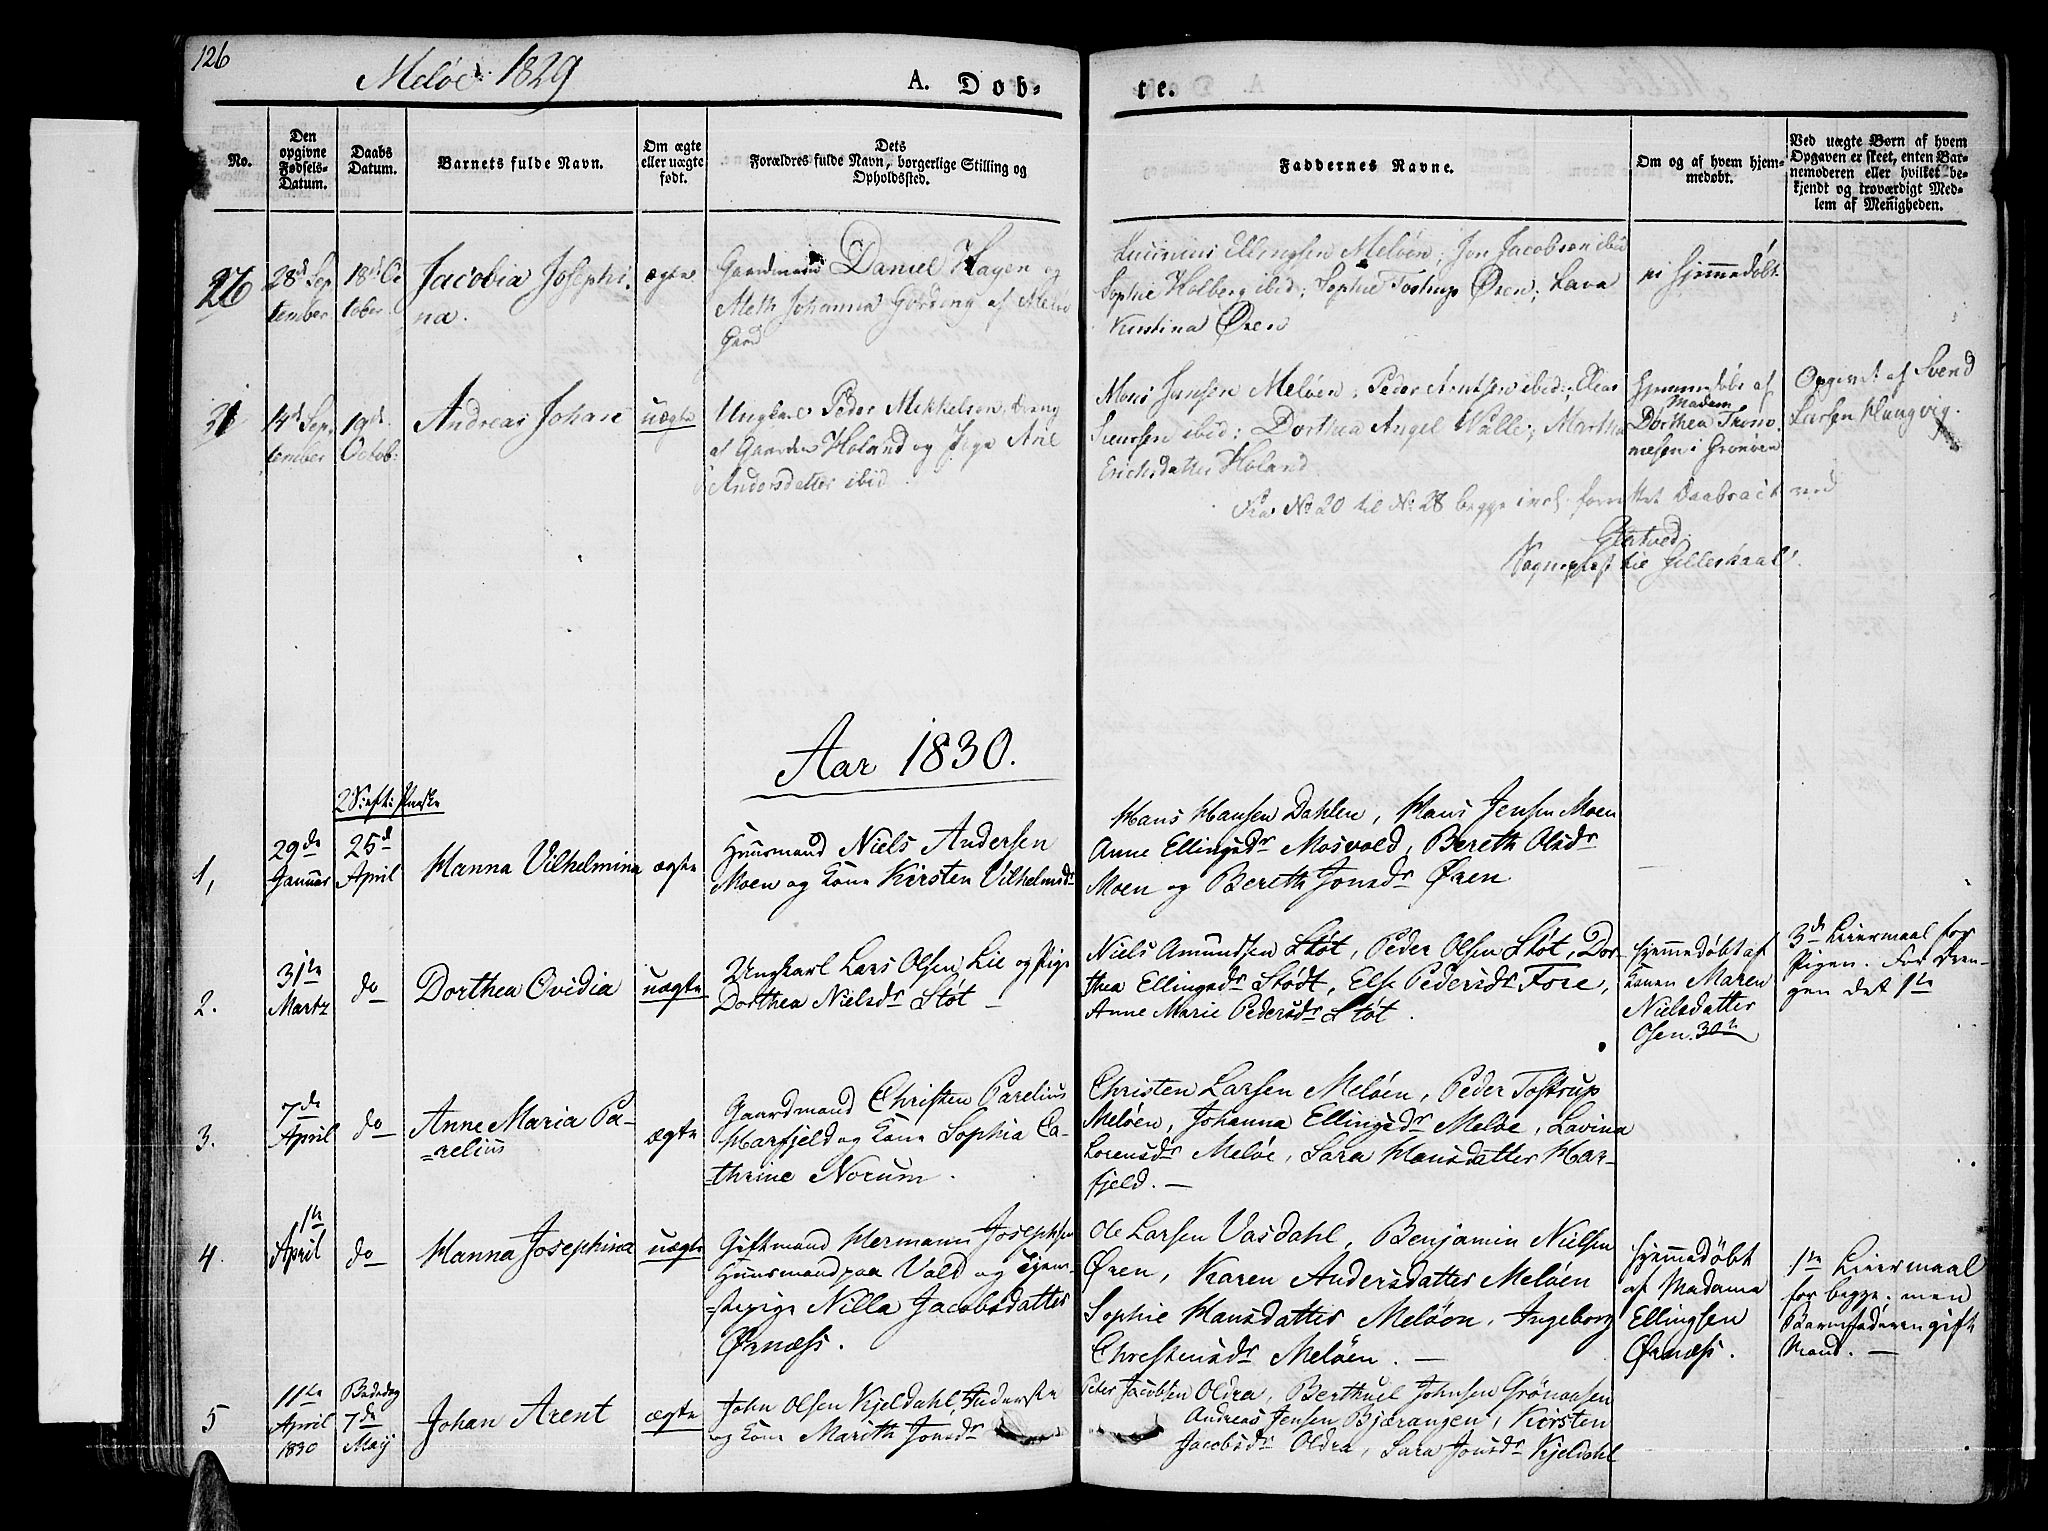 126
Meløe 1829
A. Dob-
te.
No.
Den opgivne Fødsels-Datum.
Daabs Datum.
Barnets fulde Navn.
Om ægte eller uægte født.
Dets Forældres fulde Navn, borgerlige Stilling og Opholdssted.
Faddernes Navne.
Om og af hvem hjemmedøbt.
Ved uægte Børn af hvem Opgaven er skeet, enten Barnemoderen eller hvilket bekjendt og troværdigt Medlem af Menigheden.
28de Sep
tember
18de Oc
tober
Jacobia Josephi-
na.
ægte
Gaardmand Daniel Hagen og
Meth Johanna Gørding af Meløe
Gaard
Ellingsen Meløen; Jon Jacobsen ibid
Sophie Holberg ibid; Sophie Tostrup Øren; Lava
Kristina Øren
ei hjemmedøbt
14de Sep
tember
19de
Octob:
Andreas Johan
uægte
Ungkarl Peder Mikkelsen, dreng
af Gaarden Holand og Pige Ane
Andersdatter ibid
Mons Jensen Meløen; Peder Arntsen ibid; Elias
Siursen ibid; Dorthea Angel Valle; Martha
Erichsdatter Holand
Hjemmedøbt af
Madam
Dorthea Thom-
mesen i Grønøen
Opgivet af Svend
Larsen Haugvig.
Fra No 20 til No 28 begge incl. forrettet Daabsact ved
Sognepræst til Gilleskaal.
Aar 1830.
2 S: eft: Paaske
1,
29de
Januar
25de
April
Hanna Vilhelmina
ægte
Huusmand Niels Andersen
Moen og Kone Kirsten Vilhelmsdr
Hans Hansen Dahlen, Hans Jensen Moen
Anne Ellingsdr Mosvold, Bereth Olsdr
Moen og Bereth Jonsdr Øren
—
2.
31te
Martz
do
Dorthea Ovidia
uægte
Ungkarl Lars Olsen Lie og Pige
Dorthea Nielsdr Støt —
Niels Amundsen Støt, Peder Olsen Støt, Dor-
thea Ellingsdr Stødt, Else Pedersdr Fore,
Anne Marie Pedersdr Støt.
hjemmedøbt af
Konen Maren
Nielsdatter
Osen
3de Leiermaal for
Pigen. For Dren-
gen det 1te
3.
7de
April
do
Anne Maria Pa-
=relius
ægte
Gaardmand Christen Parelius
Harfjeld og Kone Sophia Ca-
=thrine Norum.
Christen Larsen Meløen, Peder Tostrup
Meløen, Johanna Ellingsdr Meløe, Lavina
Lorensdr Meløe, Sara Hansdatter Har-
fjeld. —
4.
1te
April
do
Hanna Josephina
uægte
Giftmand Hermann Josephsen
Huusmand paa Vald og Tjene-
=stepige Nilla Jacobsdatter
Ørnæss.
Ole Larsen Vasdahl, Benjamin Nielsen
Øren, Karen Andersdatter Meløen
Sophie Hansdatter Meløen, Ingeborg
Christensdr Meløen. —
hjemmedøbt
af Madame
Ellingsen
Ørnæss.
1te Leiermaal
for begge. men
Barnefaderen gift
Mand. —
5
11te
April
1830
Bededag
7de
Maij
Johan Arent
ægte
John Olsen Kjeldahl, Inderste
og Kone Marith Jonsdr
Peter Jacobsen Oldra, Berthuel Johnsen Grönaasen
Andreas Jensen Bjærangen, Kirsten
Jacobsdr Oldra, Sara Jonsdr Kjeldahl